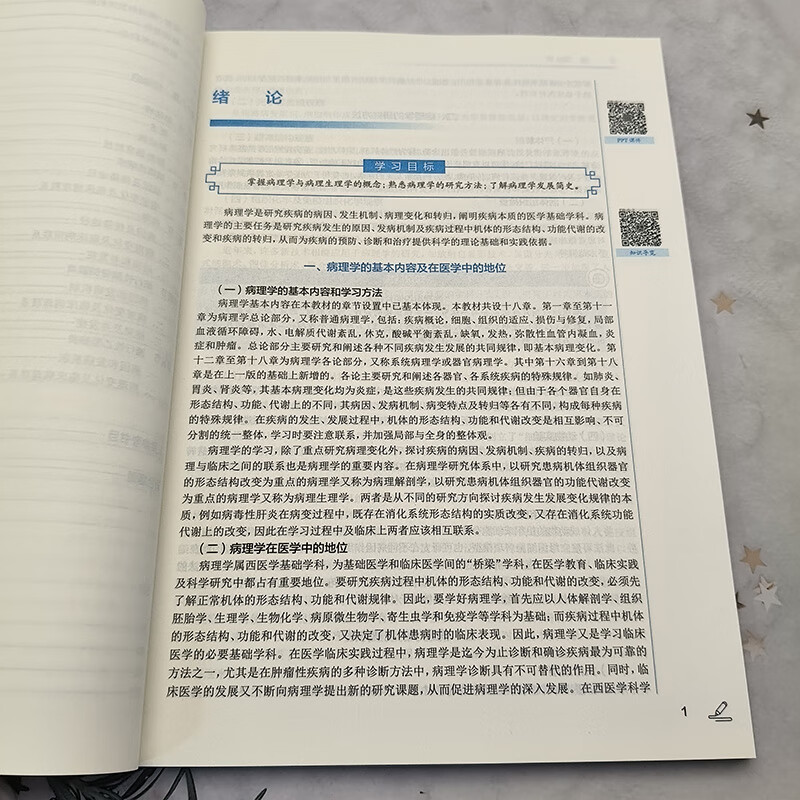 绪 论
PPT课件
学习目标
掌握病理学与病理生理学的概念；熟悉病理学的研究方法；了解病理学发展简史。
知识导览
病理学是研究疾病的病因、发生机制、病理变化和转归，阐明疾病本质的医学基础学科。病
理学的主要任务是研究疾病发生的原因、发病机制及疾病过程中机体的形态结构、功能代谢的改
变和疾病的转归，从而为疾病的预防、诊断和治疗提供科学的理论基础和实践依据。
一、病理学的基本内容及在医学中的地位
（一）病理学的基本内容和学习方法
病理学基本内容在本教材的章节设置中已基本体现。本教材共设十八章。第一章至第十一
章为病理学总论部分，又称普通病理学，包括：疾病概论，细胞、组织的适应、损伤与修复，局部
血液循环障碍，水、电解质代谢紊乱，休克，酸碱平衡紊乱，缺氧，发热，弥散性血管内凝血，炎
症和肿瘤。总论部分主要研究和阐述各种不同疾病发生发展的共同规律，即基本病理变化。第
十二章至第十八章为病理学各论部分，又称系统病理学或器官病理学。其中第十六章到第十八
章是在上一版的基础上新增的。各论主要研究和阐述各器官、各系统疾病的特殊规律。如肺炎、
胃炎、肾炎等，其基本病理变化均为炎症，是这些疾病发生的共同规律；但由于各个器官自身在
形态结构、功能、代谢上的不同，其病因、发病机制、病变特点及转归等各有不同，构成每种疾病
的特殊规律。在疾病的发生、发展过程中，机体的形态结构、功能和代谢改变是相互影响、不可
分割的统一整体，学习时要注意联系，并加强局部与全身的整体观。
病理学的学习，除了重点研究病理变化外，探讨疾病的病因、发病机制、疾病的转归，以及病
理与临床之间的联系也是病理学的重要内容。在病理学研究体系中，以研究患病机体组织器官
的形态结构改变为重点的病理学又称为病理解剖学，以研究患病机体组织器官的功能代谢改变
为重点的病理学又称为病理生理学。两者是从不同的研究方向探讨疾病发生发展变化规律的本
质，例如病毒性肝炎在病变过程中，既存在消化系统形态结构的实质改变，又存在消化系统功能
代谢上的改变，因此在学习过程中及临床上两者应该相互联系。
（二）病理学在医学中的地位
病理学属西医学基础学科，为基础医学和临床医学间的“桥梁”学科，在医学教育、临床实践
及科学研究中都占有重要地位。要研究疾病过程中机体的形态结构、功能和代谢的改变，必须先
了解正常机体的形态结构、功能和代谢规律。因此，要学好病理学，首先应以人体解剖学、组织
胚胎学、生理学、生物化学、病原微生物学、寄生虫学和免疫学等学科为基础；而疾病过程中机体
的形态结构、功能和代谢的改变，又决定了机体患病时的临床表现。因此，病理学又是学习临床
医学的必要基础学科。在医学临床实践过程中，病理学是迄今为止诊断和确诊疾病最为可靠的
方法之一，尤其是在肿瘤性疾病的多种诊断方法中，病理学诊断具有不可替代的作用。同时，临
床医学的发展又不断向病理学提出新的研究课题，从而促进病理学的深入发展。在西医学科学
1